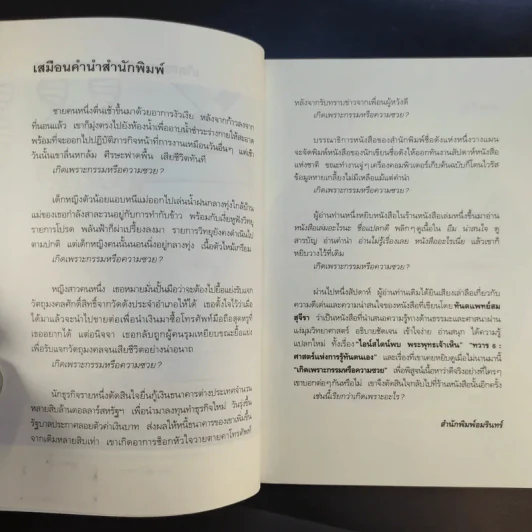 เสมือนคำนำสำนักพิมพ์
ชายคนหนึ่งตื่นเช้าขึ้นมาด้วยอาการงัวเงีย หลังจากก้าวลงจาก
ที่นอนแล้ว เขาก็มุ่งตรงไปยังห้องน้ำเพื่ออาบน้ำชำระร่างกายให้สะอาด
พร้อมที่จะออกไปปฏิบัติภารกิจหน้าที่การงานเหมือนวันอื่นๆ แต่เช้า
วันนั้นเขาลื่นหกล้ม ศีรษะฟาดพื้น เสียชีวิตทันที
เกิดเพราะกรรมหรือความซวย ?
เด็กหญิงตัวน้อยแอบหนีแม่ออกไปเล่นน้ำฝนกลางทุ่งใกล้บ้าน
แม่ของเธอกำลังสาละวนอยู่กับการทำกับข้าว พร้อมกับเงี่ยหูฟังวิทยุ
รายการโปรด พลันฟ้าก็ผ่าเปรี้ยงลงมา รายการวิทยุยังคงดำเนินไป
ตามปกติ แต่เด็กหญิงคนนั้นนอนนิ่งอยู่กลางทุ่ง เนื้อตัวไหม้เกรียม
เกิดเพราะกรรมหรือความซวย ?
หญิงสาวคนหนึ่ง เธอหมายมั่นปั้นมือว่าจะต้องไปยื้อแย่งรับแจก
วัตถุมงคลศักดิ์สิทธิ์จากวัดดังประจำอำเภอให้ได้ เธอตั้งใจไว้ว่าเมื่อ
ได้มาแล้วจะนำไปขายต่อเพื่อนำเงินมาซื้อโทรศัพท์มือถือสุดหรูที่
เธออยากได้ แต่อนิจจา เธอกลับถูกผู้คนรุมเหยียบขณะยื้อแย่ง
เพื่อรับแจกวัตถุมงคลจนเสียชีวิตอย่างน่าอนาถ
เกิดเพราะกรรมหรือความซวย ?
นักธุรกิจรายหนึ่งตัดสินใจยื่นกู้เงินธนาคารต่างประเทศจำนวน
หลายสิบล้านดอลลาร์สหรัฐฯ เพื่อนำมาลงทุนทำธุรกิจใหม่ วันรุ่งขึ้น
รัฐบาลประกาศลอยตัวค่าเงินบาท ส่งผลให้หนี้ธนาคารของเขาเพิ่มขึ้น
จากเดิมหลายสิบเท่า เขาเกิดอาการช็อกหัวใจวายตายคาโทรศัพท์
หลังจากรับทราบข่าวจากเพื่อนผู้หวังดี
เกิดเพราะกรรมหรือความซวย ?
บรรณาธิการหนังสือของสำนักพิมพ์ชื่อดังแห่งหนึ่งวางแผน
จะจัดพิมพ์หนังสือของนักเขียนชื่อดังให้ออกทันงานสัปดาห์หนังสือ
แห่งชาติ ขณะทำงานจู่ๆ เครื่องคอมพิวเตอร์เก็บต้นฉบับก็โดนไวรัส
ข้อมูลหายเกลี้ยงไม่มีเหลือแม้แต่คำนำ
เกิดเพราะกรรมหรือความซวย ?
ผู้อ่านท่านหนึ่งหยิบหนังสือในร้านหนังสือเล่มหนึ่งขึ้นมาอ่าน
หนังสือเล่มอะไรนะ ชื่อแปลกดี พลิกๆ ดูเนื้อใน อืม น่าสนใจ ดู
สารบัญ อ่านคำนำ อ่านไม่รู้เรื่องเลย หนังสืออะไรเนี่ย แล้วเขาก็
หยิบวางไว้ที่เดิม
เกิดเพราะกรรมหรือความซวย ?
ผ่านไปหนึ่งสัปดาห์ ผู้อ่านท่านเดิมได้ยินเสียงเล่าลือเกี่ยวกับ
ความดีเด่นและความน่าสนใจของหนังสือที่เขียนโดย ทันตแพทย์สม
สุจีรา ว่าเป็นหนังสือที่นำเสนอความรู้ทางด้านธรรมะและศาสนาผ่าน
แง่มุมวิทยาศาสตร์ อธิบายชัดเจน เข้าใจง่าย อ่านสนุก ได้ความรู้
แปลกใหม่ ทั้งเรื่อง "ไอน์สไตน์พบ พระพุทธเจ้าเห็น" "ทวาร 6 :
ศาสตร์แห่งการรู้ทันตนเอง" และเรื่องที่เขาเคยหยิบดูเมื่อไม่นานมานี้
"เกิดเพราะกรรมหรือความซวย" เพื่อพิสูจน์เนื้อหาว่าดีจริงอย่างที่ใครๆ
เขาบอกต่อๆ กันหรือไม่ เขาจึงตัดสินใจกลับไปที่ร้านหนังสือนั้นอีกครั้ง
เช่นนี้เรียกว่าเกิดเพราะอะไร ?
สำนักพิมพ์อมรินทร์